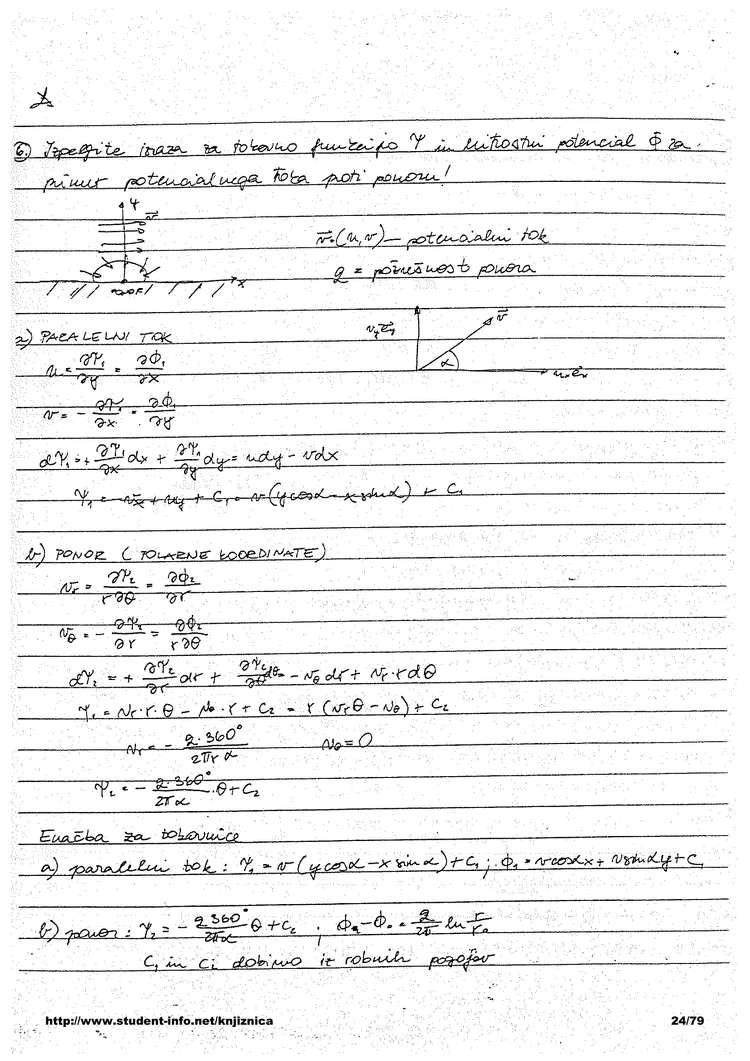 6. Izpeljite izraza za tokovno funkcijo Ψ in hitrostni potencial Φ za
primer potencialnega toka proti ponoru!
y
v⃗
v⃗ = (u, v) – potencialni tok
x
q = požrešnost ponora
a) PARALELNI TOK
v_y e⃗_y v⃗
u = ∂Ψ₁/∂y = ∂Φ₁/∂x
α u_x e⃗_x
v = - ∂Ψ₁/∂x = ∂Φ₁/∂y
dΨ₁ = + ∂Ψ₁/∂x dx + ∂Ψ₁/∂y dy = udy - vdx
Ψ₁ = -vx + uy + C₁ = v(ycosα - xsinα) + C₁
b) PONOR (POLARNE KOORDINATE)
v_r = ∂Ψ₂/r∂θ = ∂Φ₂/∂r
v_θ = - ∂Ψ₂/∂r = ∂Φ₂/r∂θ
dΨ₂ = + ∂Ψ₂/∂r dr + ∂Ψ₂/∂θ dθ = - v_θ dr + v_r · r dθ
Ψ₂ = v_r · r · θ - v_θ · r + C₂ = r (v_r θ - v_θ) + C₂
v_r = - q·360°/2πrα v_θ = 0
Ψ₂ = - q·360°/2πα · θ + C₂
Enačba za tokovnice
a) paralelni tok : Ψ₁ = v (ycosα - x sinα) + C₁ ; Φ₁ = vcosαx + vsinαy + C₁
b) ponor : Ψ₂ = - q 360°/2πα θ + C₂ ; Φ - Φ₀ = q/2π ln r/r₀
C₁ in C₂ dobimo iz robnih pogojev
http://www.student-info.net/knjiznica 24/79